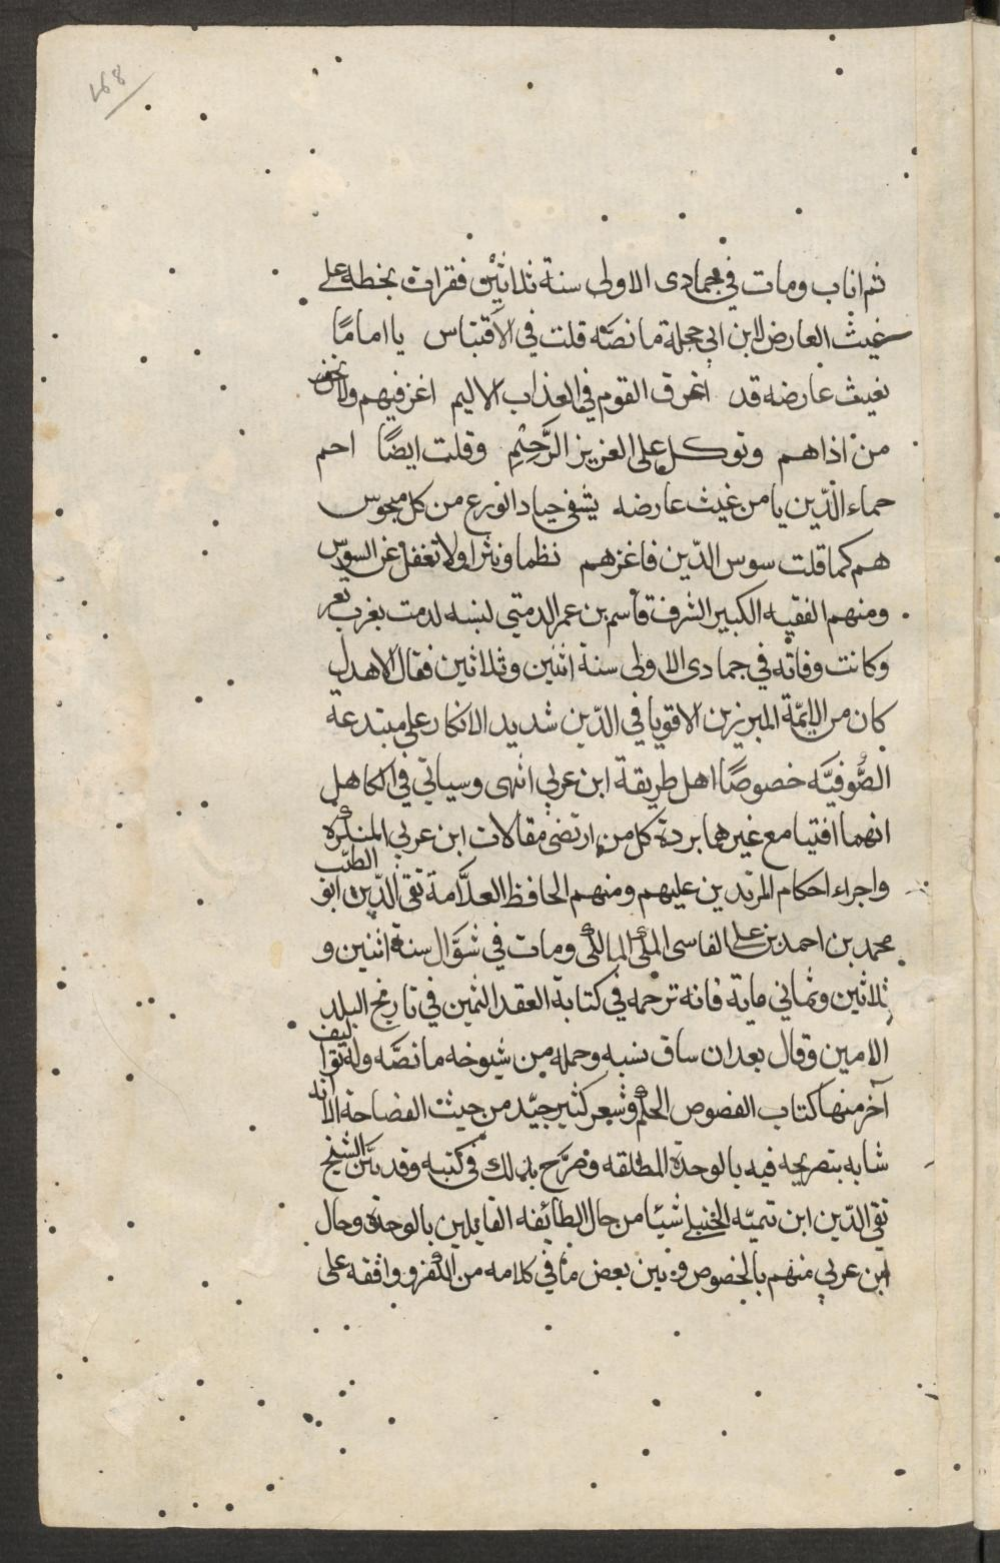 168
ثم اناب ومات في جمادى الاولى سنة ثلاثين فقرات بخطه على
غيث العارض لابن ابي حجلة ما نصّه قلت في الاقتباس ياامامًا
بغيث عارضه قد اغرق القوم في العذاب الاليم اغز فيهم ولا تخف
من اذاهم وتوكل على العزيز الرَّحِيْمِ وقلت ايضًا احم
حماء الدّين يامن غيث عارضه يشفي من كل مجوس
هم كما قلت سوس الدّين فاغزهم نظما ونثرا ولا تغفل عن السوس
ومنهم الفقيه الكبير الشرف قاسم بن عمر الدمتي لنسبه لدمت بغرب تعز
وكانت وفاته في جمادى الاولى سنة اثنين وثلاثين فقال الاهدل
كان من الايمّة المبرزين الاقويا في الدّين شديد الانكار على مبتدعة
الصُّوفيّه خصوصًا اهل طريقة ابن عربي انتهى وسياتي في الكاهل
انهما افتيا مع غيرهما بردة كل من ارتضى مقالات ابن عربي المنكرة
واجراء احكام المرتدين عليهم ومنهم الحافظ العلاَّمة تقي الدّين ابو الطيّب
محمد بن احمد بن على الفاسى المكي المالكي ومات في شوَّال سنة اثنين و
ثلاثين وثماني ماية فانه ترجمه في كتابة العقد الثمين في تاريخ البلد
الامين وقال بعد ان ساق نسبه وجمله من شيوخه ما نصّه وله تواليف
آخر منها كتاب الفصوص الحكم وشعر كثير جيّد من حيث الفصاحة الا انه
شابه بتصريحه فيه بالوحدة المطلقه وصرّح بذالك في كتبه وقد بيّن الشيخ
تقي الدّين ابن تيميّه الحنبلي شيئا من حال الطائفه القايلين بالوحدة وحال
ابن عربي منهم بالخصوص وبين بعض ما في كلامه من الكفر ووافقه على